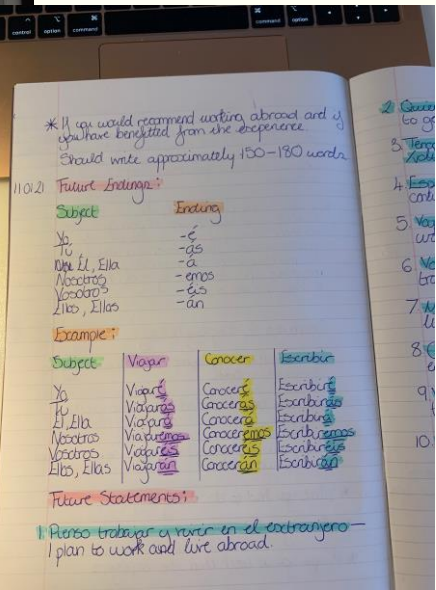 control option command
command option
* If you would recommend working abroad and if
you have benefitted from the experience
Should write approximately 150-180 words
11.01.21 Future Endings:
Subject Ending
Yo -é
Tú -ás
Él, Ella -á
Nosotros -emos
Vosotros -éis
Ellos, Ellas -án
Example:
Subject Viajar Conocer Escribir
Yo Viajaré Conoceré Escribiré
Tú Viajarás Conocerás Escribirás
Él, Ella Viajará Conocerá Escribirá
Nosotros Viajaremos Conoceremos Escribiremos
Vosotros Viajaréis Conoceréis Escribiréis
Ellos, Ellas Viajarán Conocerán Escribirán
Future Statements:
1. Pienso trabajar y vivir en el extranjero -
I plan to work and live abroad.
2.
to go
3.
4.
5.
6.
7.
8.
9.
10.